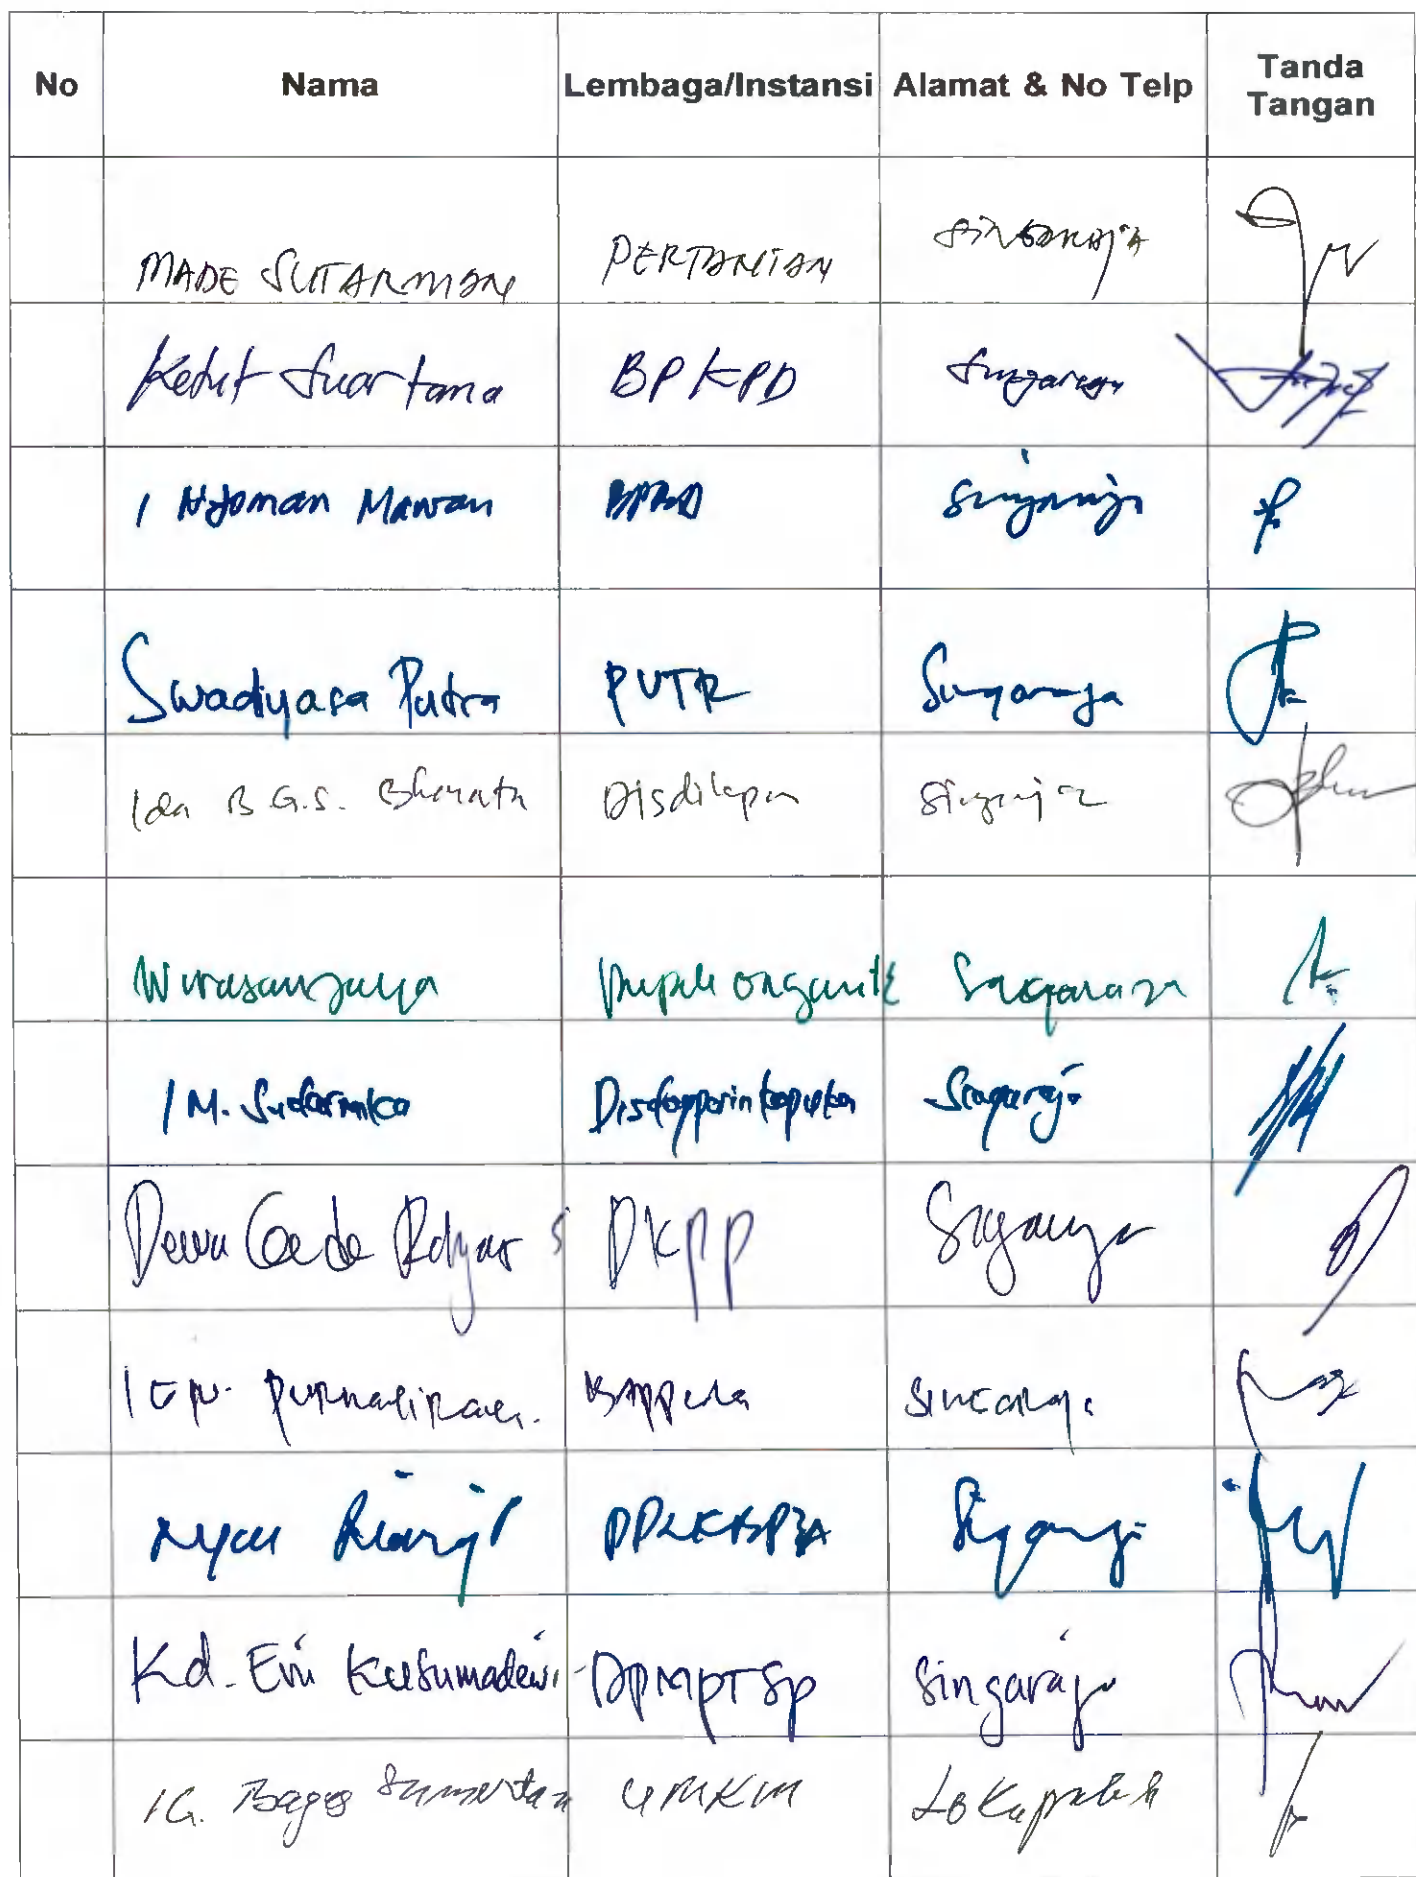 No Nama Lembaga/Instansi Alamat & No Telp Tanda Tangan
MADE SUTARMAN PERTANIAN SINGARAJA
Ketut Suartana BPKPD Singaraja
I Nyoman Mawan BPBD Singaraja
Swadiyasa Putra PUTR Singaraja
Ida B.G.S. Bharata Disdikpora Singaraja
Wirasanjaya Pupuk organik Singaraja
I M. Sudarmika Disdagperinkopukm Singaraja
Dewa Gede S DKPP Singaraja
Bappeda Singaraja
Singaraja
Kd. Evi Kusumadewi DPMPTSP Singaraja
IG. Bagus UMKM